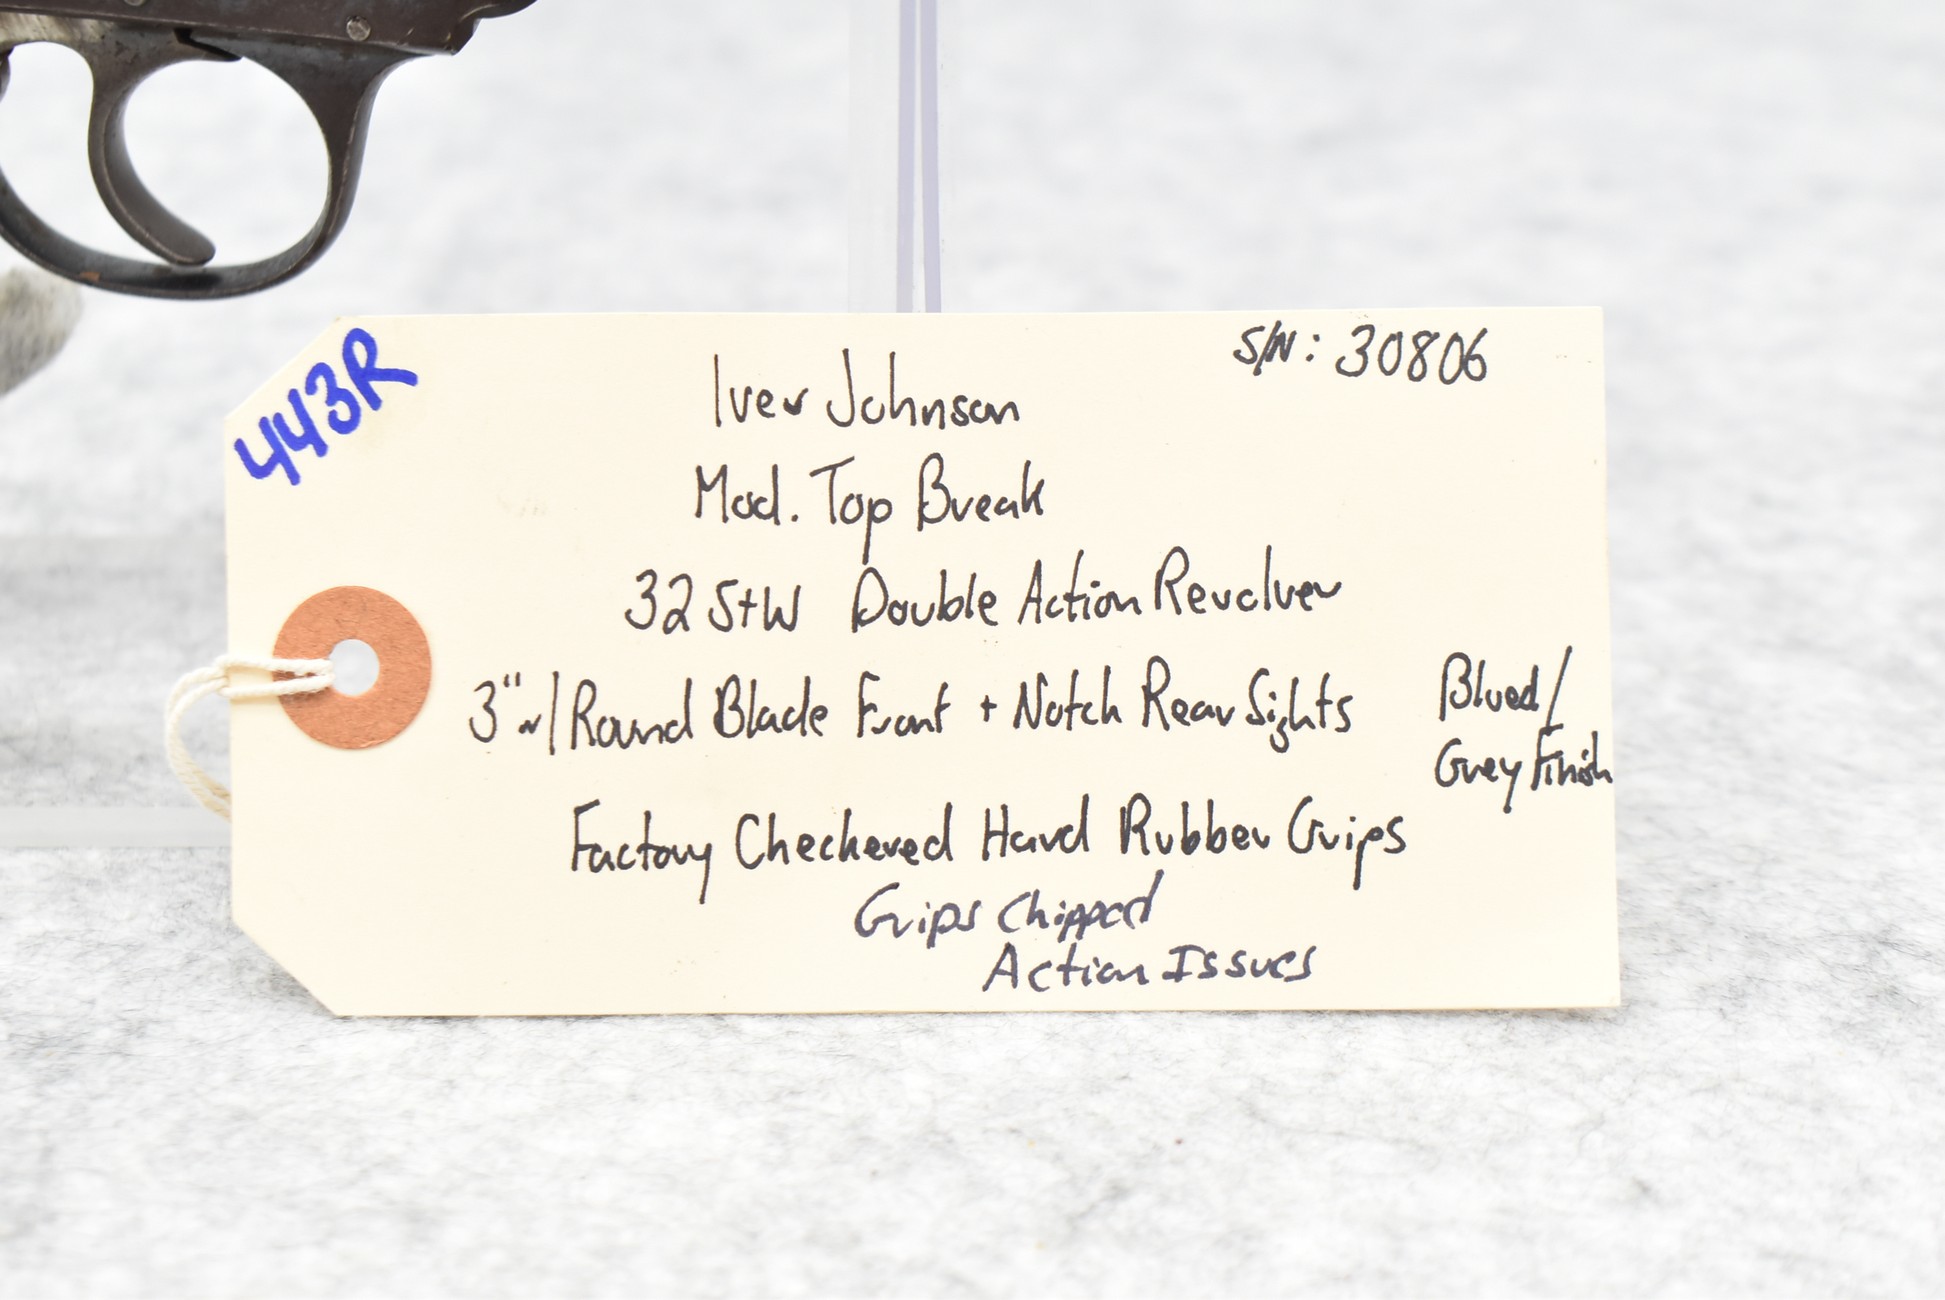 443R
S/N: 30806
Iver Johnson
Mod. Top Break
32 S+W Double Action Revolver
3" w/ Round Blade Front + Notch Rear Sights
Blued/
Grey Finish
Factory Checkered Hard Rubber Grips
Grips Chipped
Action Issues